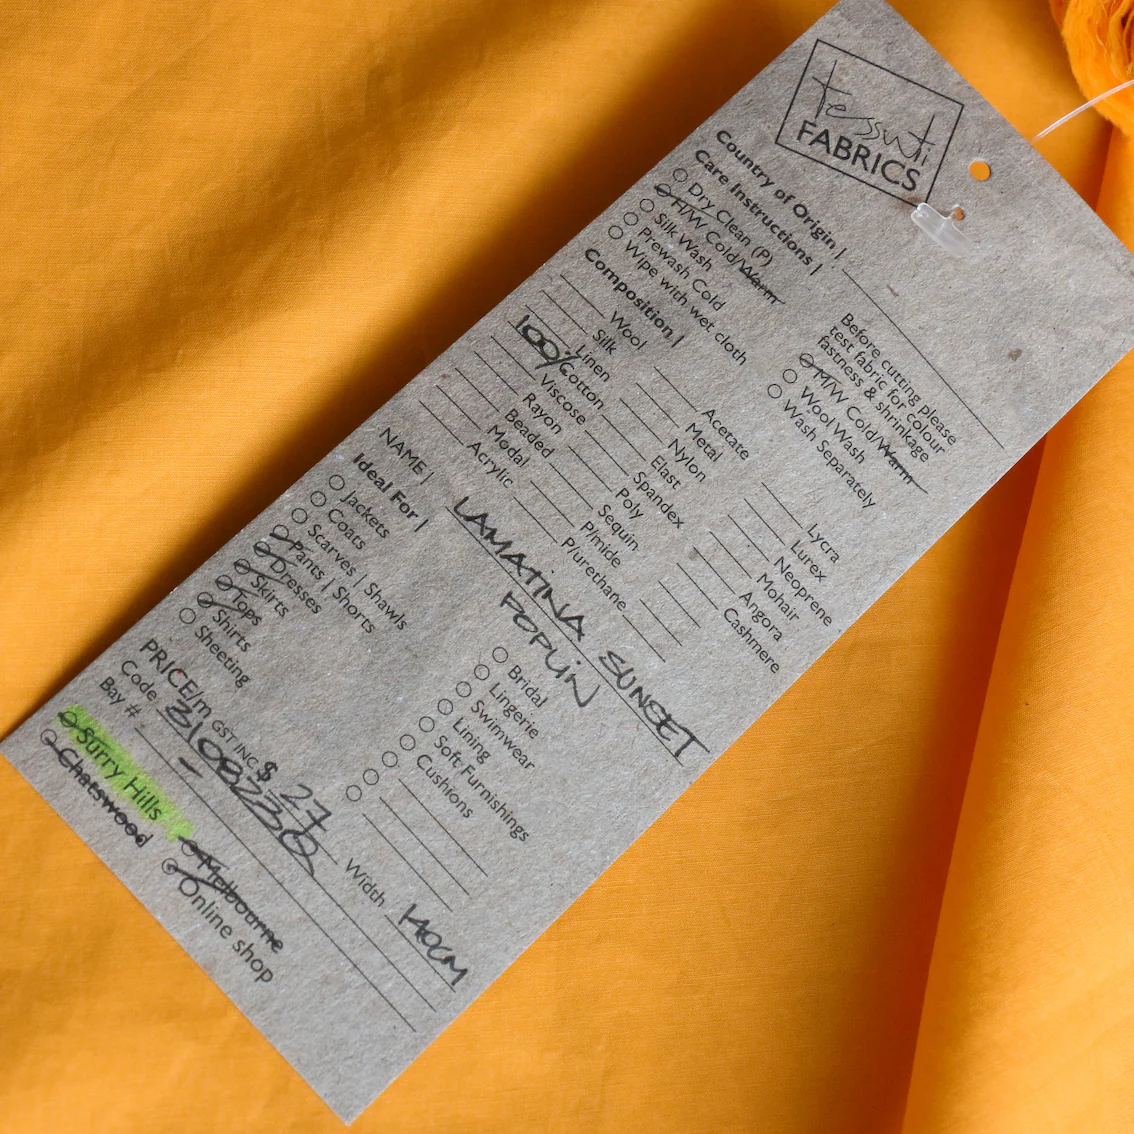 tessuti
FABRICS
Country of Origin |
Care Instructions |
Dry Clean (P)
H/W Cold/Warm
Silk Wash
Prewash Cold
Wipe with wet cloth
Before cutting please
test fabric for colour
fastness & shrinkage
M/W Cold/Warm
Wool Wash
Wash Separately
Composition |
Wool
Silk
Linen
100% Cotton
Viscose
Rayon
Beaded
Modal
Acrylic
Acetate
Metal
Nylon
Elast
Spandex
Poly
Sequin
P/mide
P/urethane
Lycra
Lurex
Neoprene
Mohair
Angora
Cashmere
NAME | LAMATINA SUNSET
POPLIN
Ideal For |
Jackets
Coats
Scarves | Shawls
Pants | Shorts
Dresses
Skirts
Tops
Shirts
Sheeting
Bridal
Lingerie
Swimwear
Lining
Soft Furnishings
Cushions
PRICE/m GST INC. $ 27
Code Width 140CM
Bay # -
Surry Hills
Chatswood
Melbourne
Online shop